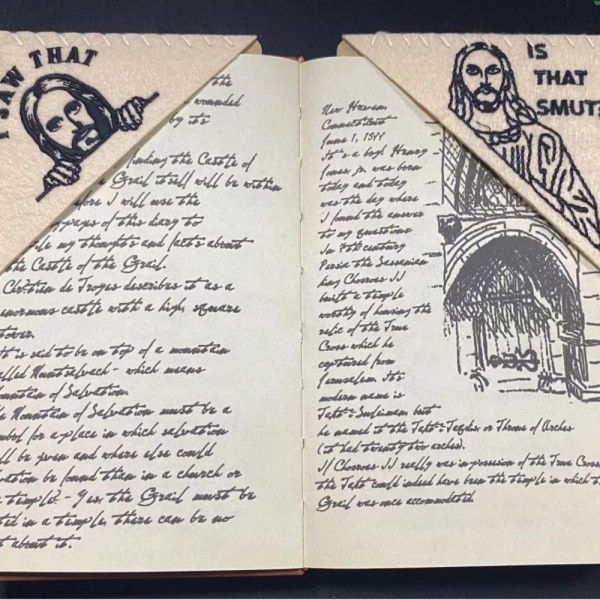 I SAW THAT
the
wounded
by its
finding the Castle of
Grail itself will be within
fore I will use the
pages of this diary to
my thoughts and facts about
the Castle of the Grail.
Chrétian de Troyes describes it as a
enormous castle with a high square
tower.
It is said to be on top of a mountain
called Muntsalvach - which means
ountain of Salvation.
Mountain of Salvation must be a
mbol for a place in which salvation
ll be given and where else could
vation be found than in a church or
a temple? - Yes, the Grail must be
ted in a temple, there can be no
t about it.
IS
THAT
SMUT?
New Haven
Connecticut
June 1, 1911
It's a boy! Henry
Jones jr. was born
today and today
was the day where
I found the answer
to my questions
In 7th century
Persia the Sassanian
king Chosroes II
built a temple
worthy of housing the
relic of the True
Cross which he
captured from
Jerusalem. Its
modern name is
Takt-i-Suleiman but
he named it the Takt-i-Taqdis or Throne of Arches
(it had twenty two arches).
If Chosroes II really was in possession of the True Cross
the Takt could indeed have been the temple in which t
Grail was once accommodated.